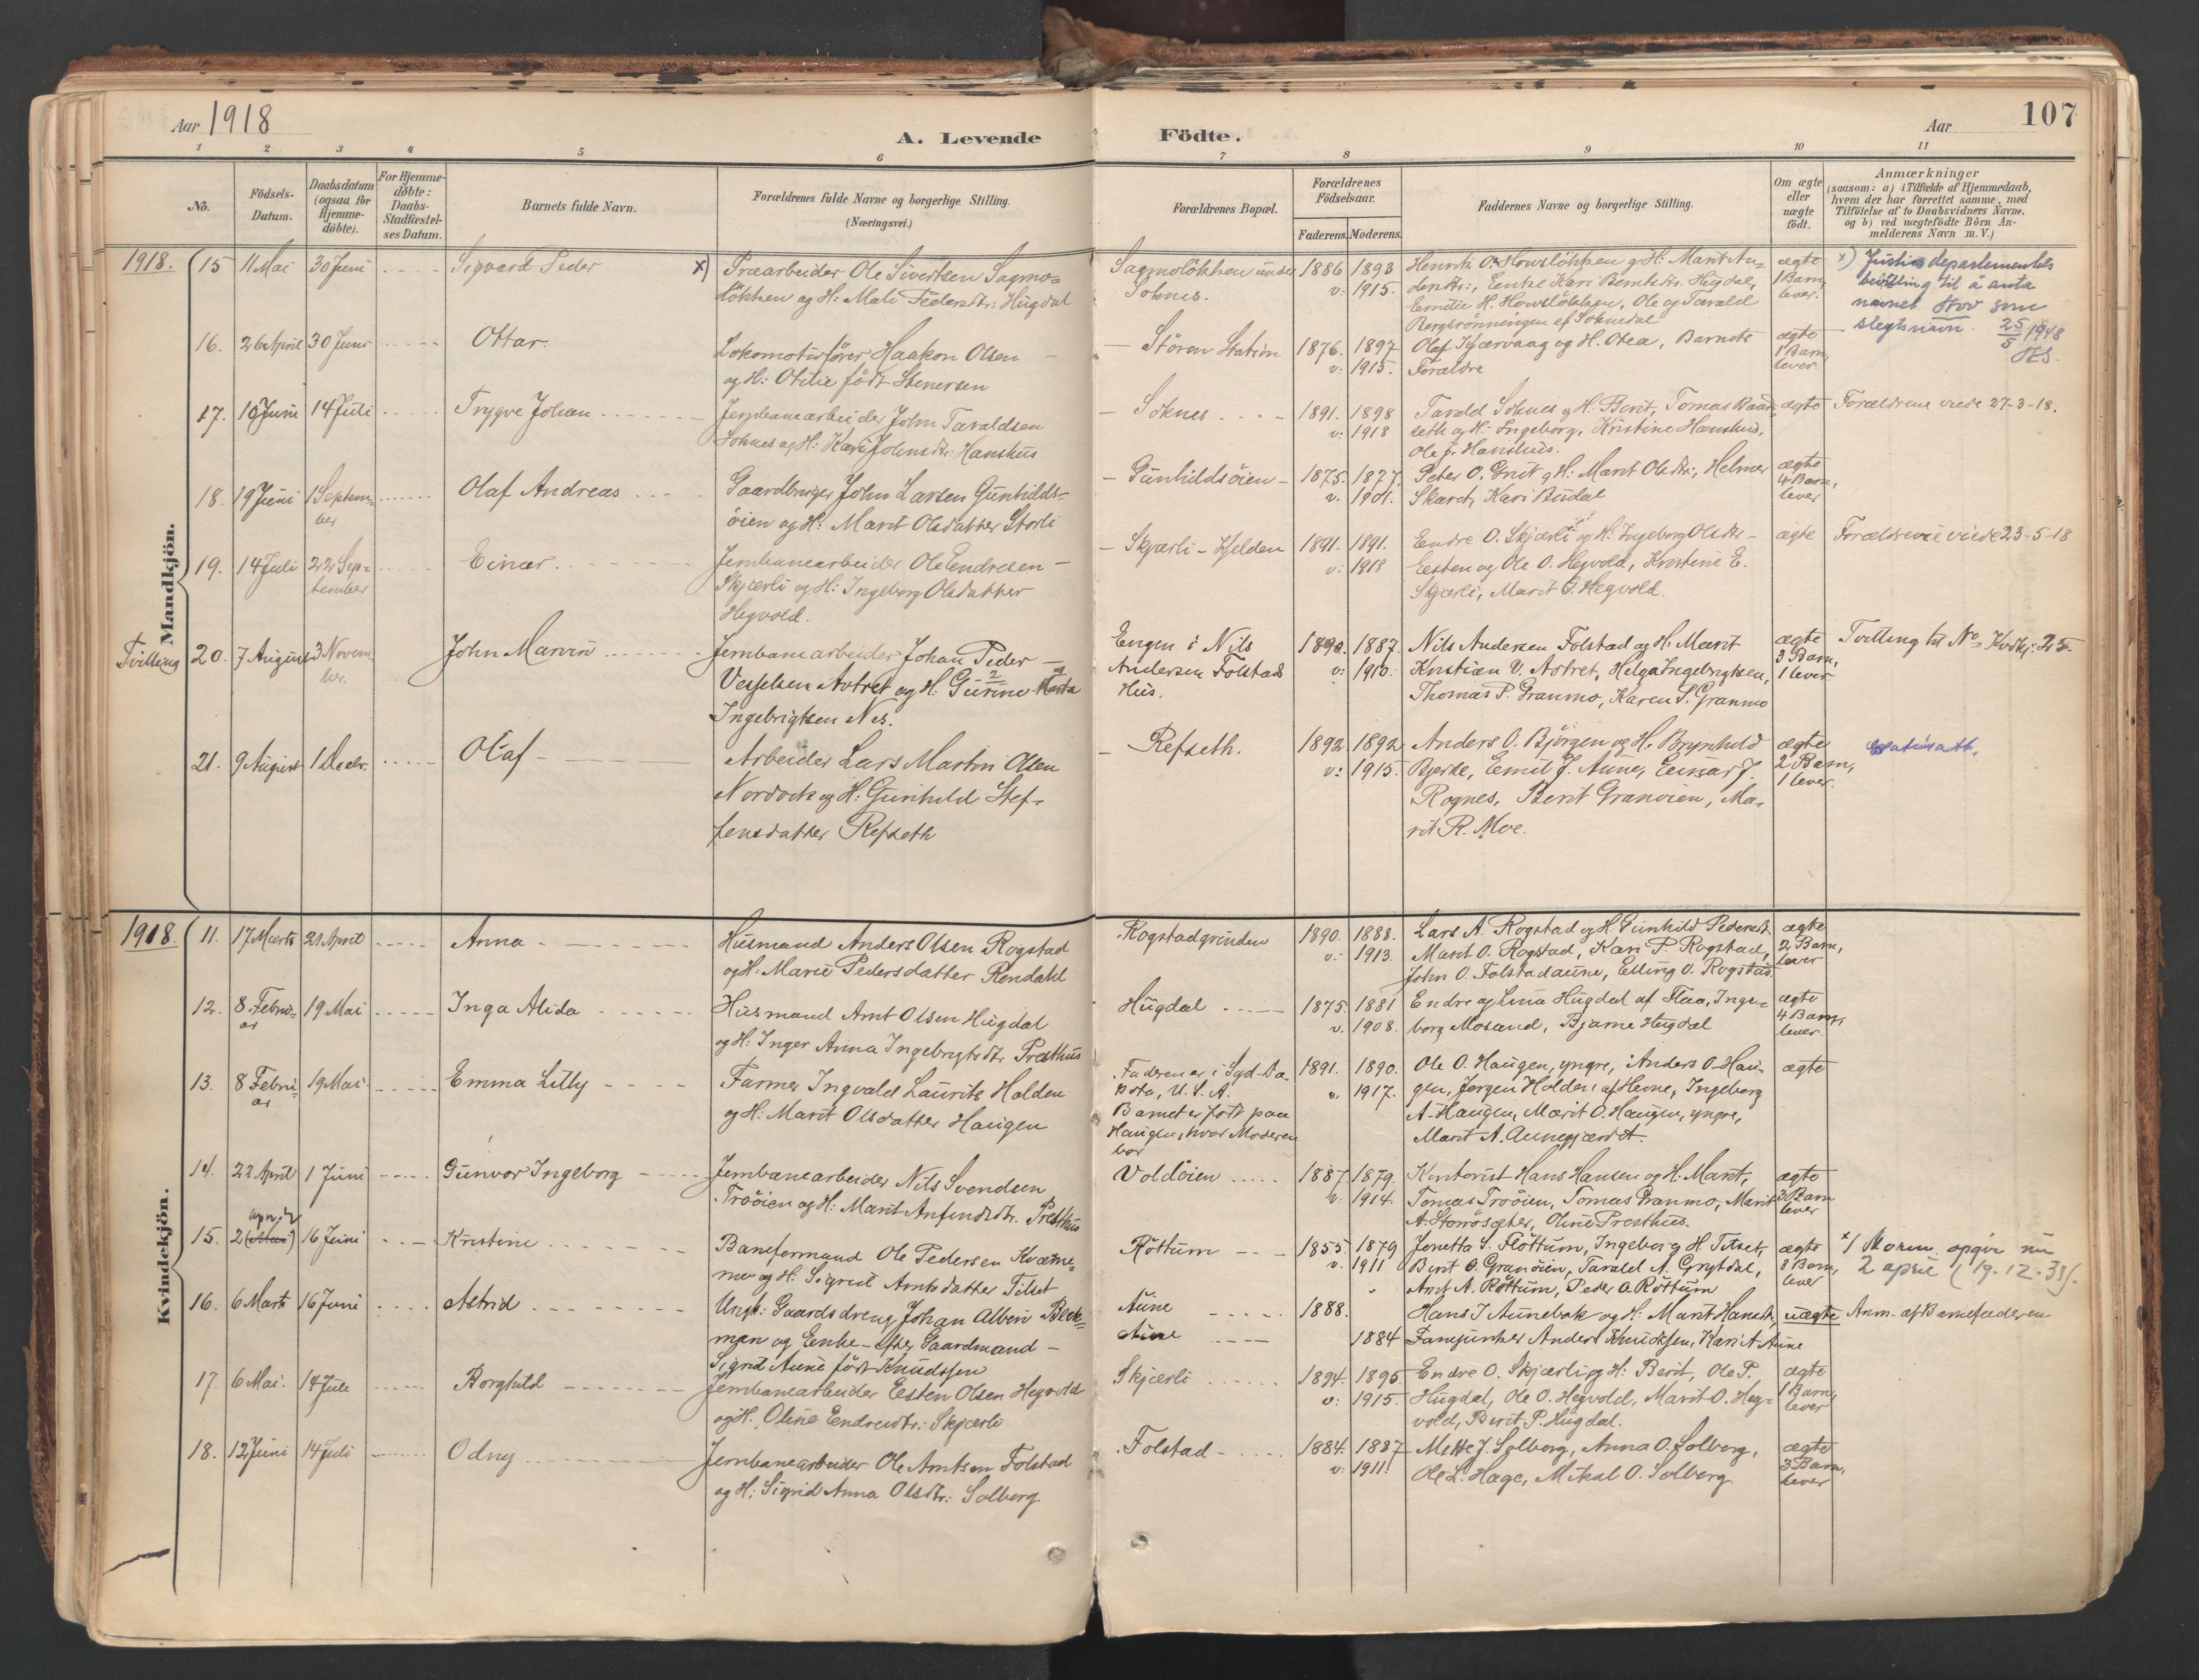 Aar 1918
A. Levende Födte.
Aar
107
1 2 3 4 5 6 7 8 9 10 11
No.
Födsels-
Datum.
Daabsdatum
(ogsaa for
Hjemme-
döbte).
For Hjemme-
döbte:
Daabs-
Stadfæstel-
ses Datum.
Barnets fulde Navn.
Forældrenes fulde Navne og borgerlige Stilling.
(Næringsvei.)
Forældrenes Bopæl.
Forældrenes
Födselsaar.
Faderens. Moderens.
Faddernes Navne og borgerlige Stilling.
Om ægte
eller
uægte
födt.
Anmærkninger
(saasom: a) i Tilfælde af Hjemmedaab,
hvem der har forrettet samme, med
Tilföielse af to Daabsvidners Navne.
og b) ved uægtefödte Börn An-
melderens Navn m. V.)
Mandkjön.
1918. 15 11 Mai 30 Juni Sigvard Peder
x) Træarbeider Ole Sivertsen Sagmo-
lökken og H: Mali Pedersdtr: Hugdal
Sagmolökken under
Soknes.
1886 1893
v: 1915.
Henrik O. Hovslökken og H: Marit An-
dersdtr:, Enke Kari Berntsdtr. Hugdal,
Emilie H. Hovslökken, Ole og Tarald
Bergsrönningen af Soknedal
ægte
1 Barn,
lever.
x) Justisdepartementets
bevilling til å anta
navnet som
slegtsnavn. 25/5 1948
16. 26 April 30 Juni Ottar.
Lokomotivförer Haakon Olsen
og H: Otilie födt Stenersen
Stören Station
1876. 1897
v: 1915.
Olaf Kjærvaag og H. Otea, Barnets
Forældre
ægte
1 Barn,
lever
17. 10 Juni 14 Juli Trygve Johan
Jernbanearbeider John Taraldsen
Soknes og H: Kari Johnsdtr: Hanshus
Soknes
1891. 1898
v: 1918
Tarald Soknes og H: Berit, Tomas Baard-
seth og H: Ingeborg, Kristine Hanshus,
Ole J. Hanshus.
ægte
Forældrene viede 27-3-18.
18. 19 Juni 1 Septem-
ber
Olaf Andreas
Gaardbruger John Larsen Gunhilds-
öien og H: Marit Olsdatter Storli
Gunhildsöien
1875. 1877.
v. 1901.
Peter O. Grut og H: Marit Olsdtr:, Helmer
Skaret, Kari Budal
ægte
4 Barn,
lever
19. 14 Juli 22 Sep-
tember
Einar
Jernbanearbeider Ole Endresen
Skjærli og H: Ingeborg Olsdatter
Hegvold.
Skjærli - Kjelden
1891. 1891.
v: 1918
Endre O. Skjærli og H: Ingeborg Olsdtr
Eesten og Ole O. Hegvold, Kristine E.
Skjærli, Marit O. Hegvold.
ægte
Forældrene viede 23-5-18
Tvilling 20. 7 August 3 Novem-
ber.
John Marvin
Jernbanearbeider Johan Peder
Vesselsen Avtret og H: Gurine Marta
Ingebrigtsen Nes.
Engen i Nils
Andersen Folstads
Hus.
1890. 1887.
v: 1910.
Nils Andersen Folstad og H: Marit
Kristian V. Avtret, Helga Ingebrigtsen,
Thomas P. Granmo, Karen S. Granmo
ægte
3 Barn,
1 lever
Tvilling til No Kvdkj: 25.
21. 9 August 1 Decbr. Olaf
Arbeider Lars Martin Olsen
Nordvik og H: Gunhild Stef-
fensdatter Refseth
Refseth.
1892. 1892
v: 1915.
Anders O. Björgen og H: Brynhild
Bjerke, Emil J. Aune, Einar J.
Rognes, Berit Granöien, Ma-
rit R. Moe.
ægte
2 Barn,
1 lever.
Kvindekjön.
1918. 11. 17 Marts 21 April Anna
Husmand Anders Olsen Rogstad
og H: Marie Pedersdatter Rendahl
Rogstadgrinden
1890. 1888.
v. 1913.
Lars A. Rogstad og H: Gunhild Pedersdt.
Marit O. Rogstad, Kari P. Rogstad,
John O. Folstadaune, Elling O. Rogstad
ægte
2 Barn,
lever
12. 8 Febru-
ar
19 Mai Inga Alida
Husmand Arnt Olsen Hugdal
og H: Inger Anna Ingebrigtsdtr Presthus
Hugdal
1875. 1881
v. 1908.
Endre og Lina Hugdal af Flaa, Inge-
borg Mosand, Bjarne Hugdal
ægte
4 Barn,
lever
13. 8 Febru-
ar
19 Mai Emma Lilly
Farmer Ingvald Laurits Holden
og H: Marit Olsdatter Haugen
Faderen er i Syd-Da-
kota, U. S. A.
Barnet er födt paa
Haugen, hvor Moderen
bor
1891. 1890.
v. 1917.
Ole O. Haugen, yngre, Anders O. Hau-
gen, Jörgen Holden af Hevne, Ingeborg
A. Haugen, Marit O. Haugen, yngre,
Marit A. Aunegjærdet.
ægte
14. 22 April 1 Juni Gunvor Ingeborg
Jernbanearbeider Nils Svendsen
Troöien og H: Marit Anfindsdtr. Presthus
Voldöien
1887. 1879.
v: 1914.
Kontorist Hans Hansen og H: Marit,
Tomas Troöien, Tomas Granmo, Marit
A. Storrösæter, Oline Presthus.
ægte
3 Barn
lever
15. 2 (Mai) april 16 Juni Kristine
Baneformand Ole Pedersen Kværne-
mo og H: Sigrid Arntsdatter Tilset
Röttum
1855. 1879
v. 1911
Jonetta S. Flöttum, Ingeborg H. Tilset,
Berit O. Granöien, Tarald A. Grytdal,
Arnt A. Röttum, Peder O. Röttum
ægte
3 Barn,
lever
x/ Moren opgir nu
2 april (19.12.33).
16. 6 Marts 16 Juni Astrid
Ungk: Gaardsdreng Johan Albin Beck-
man og Enke efter Gaardmand
Sigrid Aune födt Knudssen
Aune
Aune
1888.
1884
Hans J Aunebak og H: Marit Hansdt.
Fanejunker Anders Knudssen, Kari A Aune
uægte
Anm. af Barnefaderen
17. 6 Mai. 14 Juli Borghild
Jernbanearbeider Eesten Olsen Hegvold
og H. Oline Endresdtr: Skjærli
Skjærli
1894. 1895
v: 1915.
Endre O. Skjærli og H: Berit, Ole P.
Hugdal, Ole O. Hegvold, Marit O. Heg-
vold, Berit P. Hugdal.
ægte
1 Barn,
lever
18. 12 Juni 14 Juli Odny
Jernbanearbeider Ole Arntsen Folstad
og H: Sigrid Anna Olsdtr: Solberg
Folstad
1884. 1887
v: 1911.
Mette J. Solberg, Anna O. Solberg,
Ole L. Hage, Mikal O. Solberg
ægte
3 Barn,
lever